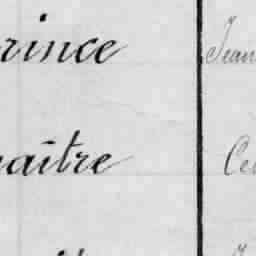 rince Jean
aître Cel